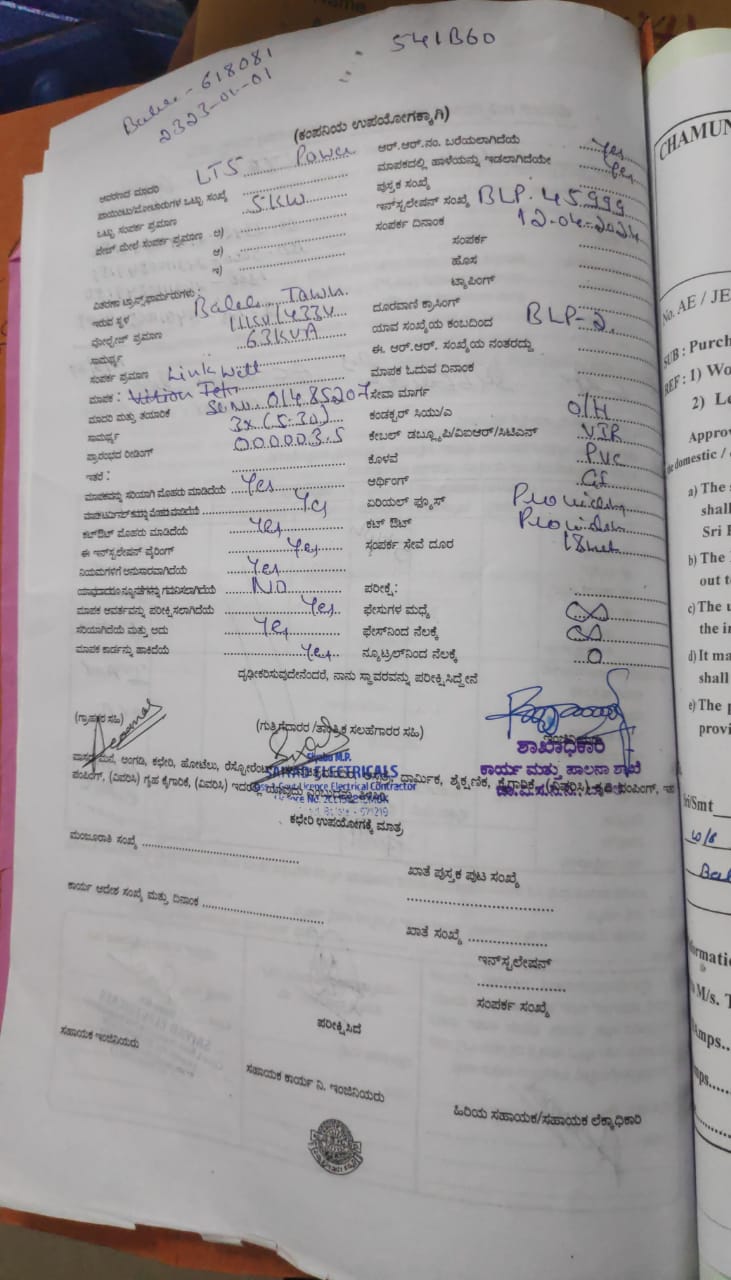 541B60
618081
2323-01-01
(ಕಂಪನಿಯ ಉಪಯೋಗಕ್ಕಾಗಿ)
ಆವರಣದ ಮಾದರಿ LT5 Power
ಪಾಯಿಂಟು/ಮೋಟಾರುಗಳ ಒಟ್ಟು ಸಂಖ್ಯೆ
ಒಟ್ಟು ಸಂಪರ್ಕ ಪ್ರಮಾಣ 5KW
ಫೇಜ್ ಮೇಲೆ ಸಂಪರ್ಕ ಪ್ರಮಾಣ ಎ)
ಆ)
ಇ)
ವಿತರಣಾ ಟ್ರಾನ್ಸ್‌ಫಾರ್ಮರುಗಳು :
ಇರುವ ಸ್ಥಳ Town
ವೋಲ್ಟೇಜ್ ಪ್ರಮಾಣ 11KV/433V
ಸಾಮರ್ಥ್ಯ 63KVA
ಸಂಪರ್ಕ ಪ್ರಮಾಣ Linkwell
ಮಾಪಕ :
ಮಾದರಿ ಮತ್ತು ತಯಾರಿಕೆ 01485207
ಸಾಮರ್ಥ್ಯ 3x(5-30)
ಪ್ರಾರಂಭದ ರೀಡಿಂಗ್ 000003.5
ಇತರೆ :
ಮಾಪಕವನ್ನು ಸರಿಯಾಗಿ ಮೊಹರು ಮಾಡಿದೆಯೆ Yes
ಮೊಹರು ಮಾಡಿದೆಯೆ Yes
ಕಟ್‌ಔಟ್ ಮೊಹರು ಮಾಡಿದೆಯೆ Yes
ಈ ಇನ್‌ಸ್ಟಲೇಷನ್ ವೈರಿಂಗ್ Yes
ನಿಯಮಗಳಿಗೆ ಅನುಸಾರವಾಗಿದೆಯೆ Yes
ಯಾವುದಾದರೂ ನ್ಯೂನತೆಗಳನ್ನು ಗಮನಿಸಲಾಗಿದೆಯೆ NO
ಮಾಪಕ ಆವರ್ತವನ್ನು ಪರೀಕ್ಷಿಸಲಾಗಿದೆಯೆ Yes
ಸರಿಯಾಗಿದೆಯೆ ಮತ್ತು ಅದು Yes
ಮಾಪಕ ಕಾರ್ಡನ್ನು ಹಾಕಿದೆಯೆ Yes
ಆರ್.ಆರ್.ನಂ. ಬರೆಯಲಾಗಿದೆಯೆ Yes
ಮಾಪಕದಲ್ಲಿ ಹಾಳೆಯನ್ನು ಇಡಲಾಗಿದೆಯೇ Yes
ಪುಸ್ತಕ ಸಂಖ್ಯೆ
ಇನ್‌ಸ್ಟಲೇಷನ್ ಸಂಖ್ಯೆ BLP.45999
ಸಂಪರ್ಕ ದಿನಾಂಕ 12-04-2024
ಸಂಪರ್ಕ
ಹೊಸ
ಟ್ಯಾಪಿಂಗ್
ದೂರವಾಣಿ ಕ್ರಾಸಿಂಗ್
ಯಾವ ಸಂಖ್ಯೆಯ ಕಂಬದಿಂದ BLP-2
ಈ. ಆರ್.ಆರ್. ಸಂಖ್ಯೆಯ ನಂತರದ್ದು
ಮಾಪಕ ಓದುವ ದಿನಾಂಕ
ಸೇವಾ ಮಾರ್ಗ
ಕಂಡಕ್ಟರ್ ಸಿಯು/ಎ O/H
ಕೇಬಲ್ ಡಬ್ಲ್ಯೂಪಿ/ವಿಐಆರ್/ಸಿಟಿಎಸ್ VIR
ಕೊಳವೆ PVC
ಆರ್ಥಿಂಗ್ GI
ಏರಿಯಲ್ ಫ್ಯೂಸ್
ಕಟ್ ಔಟ್
ಸಂಪರ್ಕ ಸೇವೆ ದೂರ
ಪರೀಕ್ಷೆ:
ಫೇಸುಗಳ ಮಧ್ಯೆ ∞
ಫೇಸ್‌ನಿಂದ ನೆಲಕ್ಕೆ ∞
ನ್ಯೂಟ್ರಲ್‌ನಿಂದ ನೆಲಕ್ಕೆ 0
ದೃಢೀಕರಿಸುವುದೇನೆಂದರೆ, ನಾನು ಸ್ಥಾವರವನ್ನು ಪರೀಕ್ಷಿಸಿದ್ದೇನೆ
(ಗ್ರಾಹಕರ ಸಹಿ)
(ಗುತ್ತಿಗೆದಾರರ /ತಾಂತ್ರಿಕ ಸಲಹೆಗಾರರ ಸಹಿ)
ಶಾಖಾಧಿಕಾರಿ
ಕಾರ್ಯ ಮತ್ತು ಪಾಲನಾ ಶಾಖೆ
M.P.
ELECTRICALS
Licence Electrical Contractor
ಅಂಗಡಿ, ಕಛೇರಿ, ಹೋಟೆಲು, ಧಾರ್ಮಿಕ, ಶೈಕ್ಷಣಿಕ,
ಪಂಪಿಂಗ್, (ವಿವರಿಸಿ) ಗೃಹ ಕೈಗಾರಿಕೆ, (ವಿವರಿಸಿ) ಪಂಪಿಂಗ್,
ಕಛೇರಿ ಉಪಯೋಗಕ್ಕೆ ಮಾತ್ರ
ಮಂಜೂರಾತಿ ಸಂಖ್ಯೆ
ಖಾತೆ ಪುಸ್ತಕ ಪುಟ ಸಂಖ್ಯೆ
ಕಾರ್ಯ ಆದೇಶ ಸಂಖ್ಯೆ ಮತ್ತು ದಿನಾಂಕ
ಖಾತೆ ಸಂಖ್ಯೆ
ಇನ್‌ಸ್ಟಲೇಷನ್
ಸಂಪರ್ಕ ಸಂಖ್ಯೆ
ಪರೀಕ್ಷಿಸಿದೆ
ಸಹಾಯಕ ಇಂಜಿನಿಯರು
ಸಹಾಯಕ ಕಾರ್ಯ ನಿ. ಇಂಜಿನಿಯರು
ಹಿರಿಯ ಸಹಾಯಕ/ಸಹಾಯಕ ಲೆಕ್ಕಾಧಿಕಾರಿ
CHAMUN
No. AE / JE
SUB : Purch
REF : 1) Wo
2) Le
Approv
the domestic /
a) The
shall
Sri
b) The
out t
c) The
the in
d) It ma
shall
e) The p
provi
Sri/Smt
M/s.
Amps